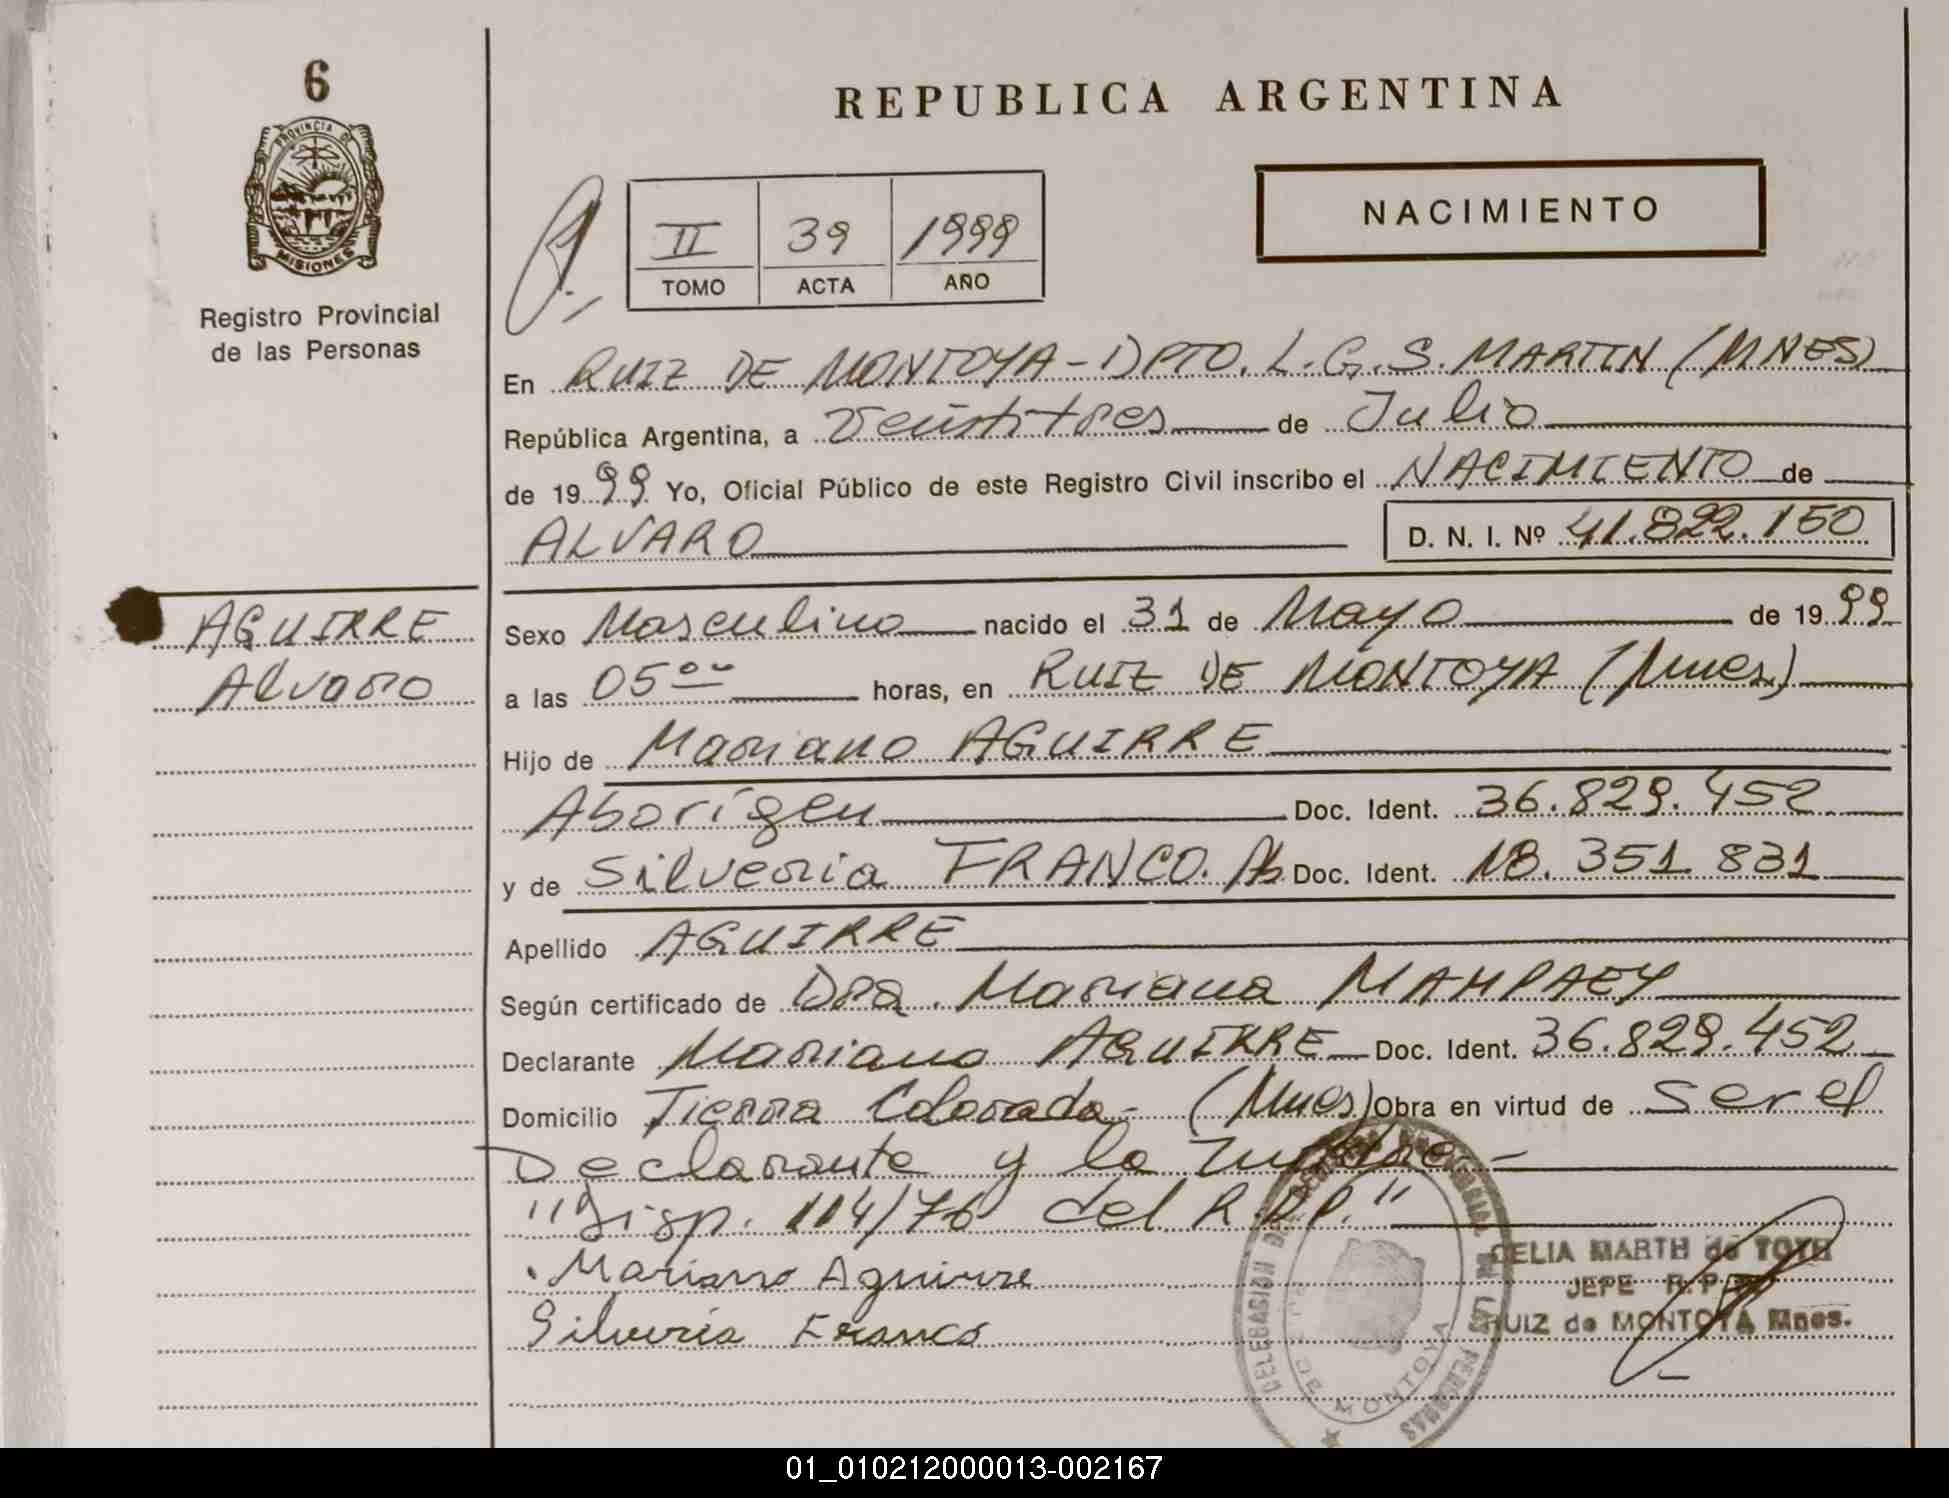 6
PROVINCIA DE
MISIONES
Registro Provincial
de las Personas
REPUBLICA ARGENTINA
NACIMIENTO
II 39 1999
TOMO ACTA AÑO
En RUIZ DE MONTOYA - DPTO. L. G. S. MARTIN (MNES)
República Argentina, a Veintitres de Julio
de 1999 Yo, Oficial Público de este Registro Civil inscribo el NACIMIENTO de
ALVARO D. N. I. Nº 41.822.150
AGUIRRE
Alvaro
Sexo Masculino nacido el 31 de Mayo de 1999
a las 05 oo horas, en RUIZ DE MONTOYA (Mnes)
Hijo de Mariano AGUIRRE
Aborígen Doc. Ident. 36.829.452
y de Silveria FRANCO. Ab Doc. Ident. 18.351 831
Apellido AGUIRRE
Según certificado de Dra. Mariana MAHPAEY
Declarante Mariano AGUIRRE Doc. Ident. 36.829.452
Domicilio Tierra Colorada - (Mnes) Obra en virtud de ser el
Declarante y la
"Disp. 114/76 del R.P.P."
Mariano Aguirre
Silveria Franco
CELIA MARTH de TOTH
JEFE R.P.
RUIZ de MONTOYA Mnes.
DELEGACION DEL REGISTRO PROVINCIAL DE LAS PERSONAS
DE MONTOYA
01_010212000013-002167